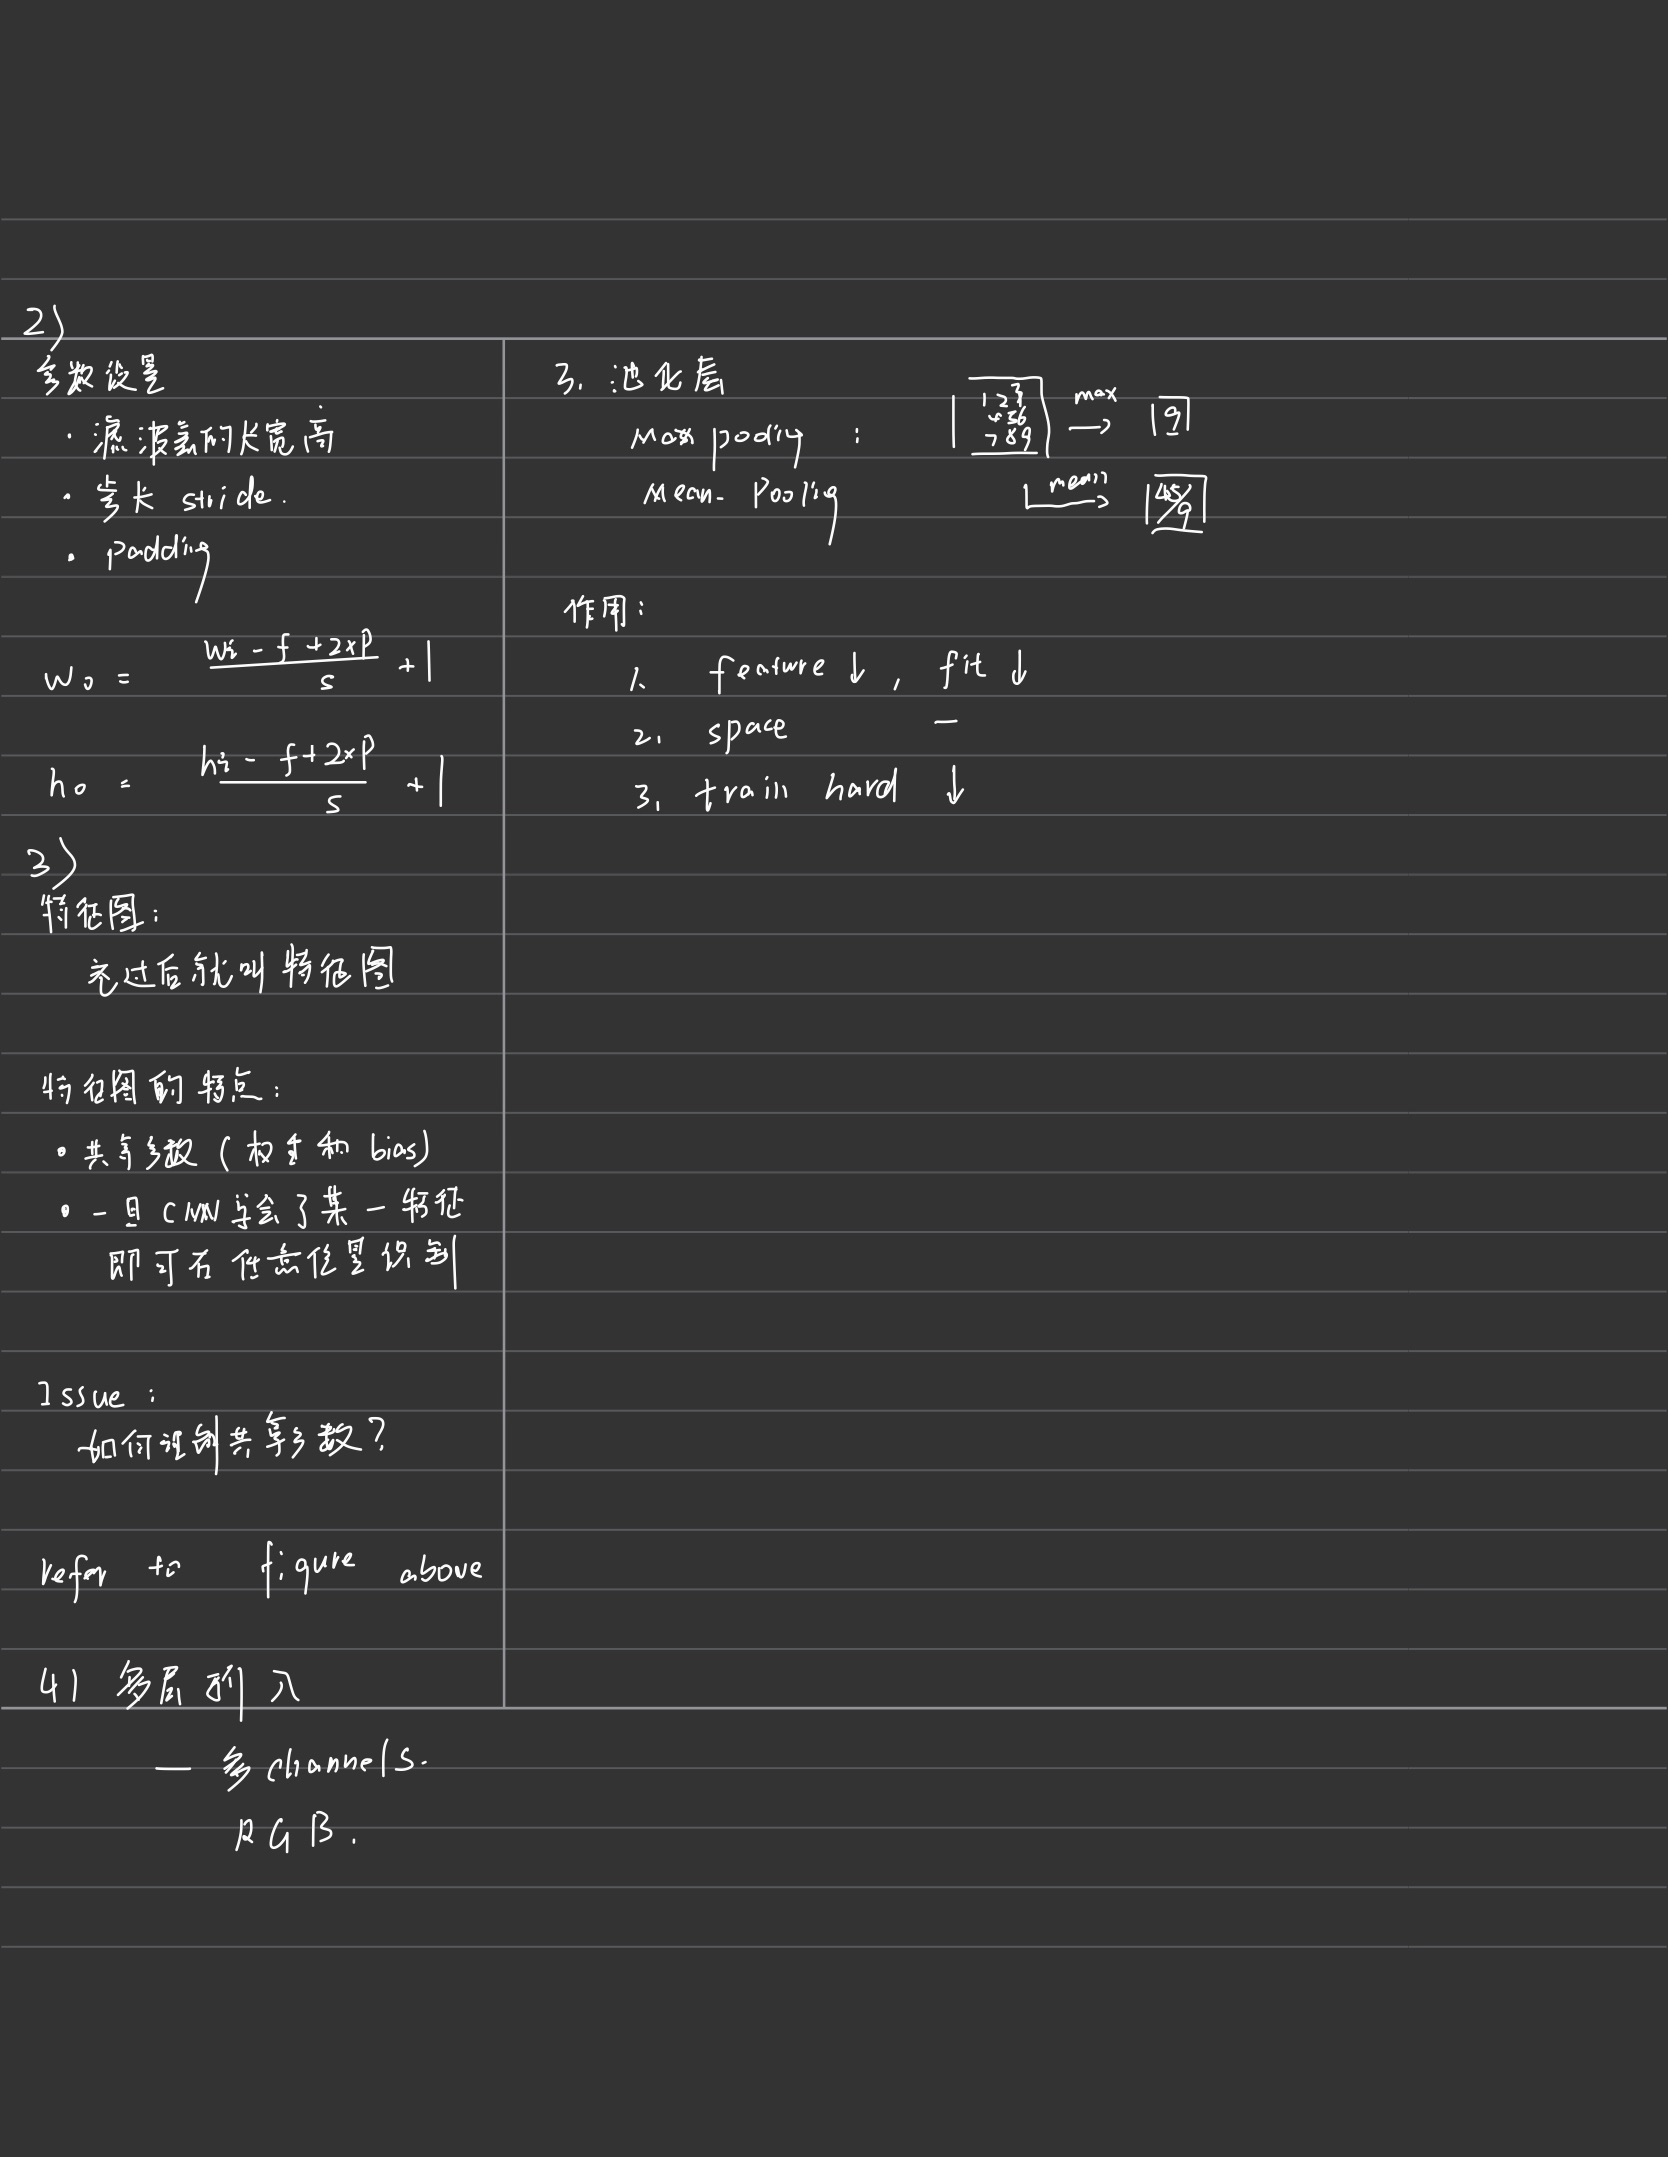 2)
参数设置
· 滤波器的长宽高
· 步长 stride.
· padding
w₀ = (wi - f + 2×P)/s + 1
h₀ = (hi - f + 2×P)/s + 1
3)
特征图:
卷过后就叫特征图
特征图的特点:
· 共享参数 (权重和 bias)
· 一旦 CNN 学会了某一特征
即可在任意位置识别
Issue:
如何理解共享参数?
refer to figure above
4) 多层 入
— 多 channels.
RGB.
3. 池化层
Max pooling :
Mean- Pooling
1 2 3
4 5 6
7 8 9
max → 9
mean → 45/9
作用:
1. feature ↓, fit ↓
2. space —
3. train hard ↓